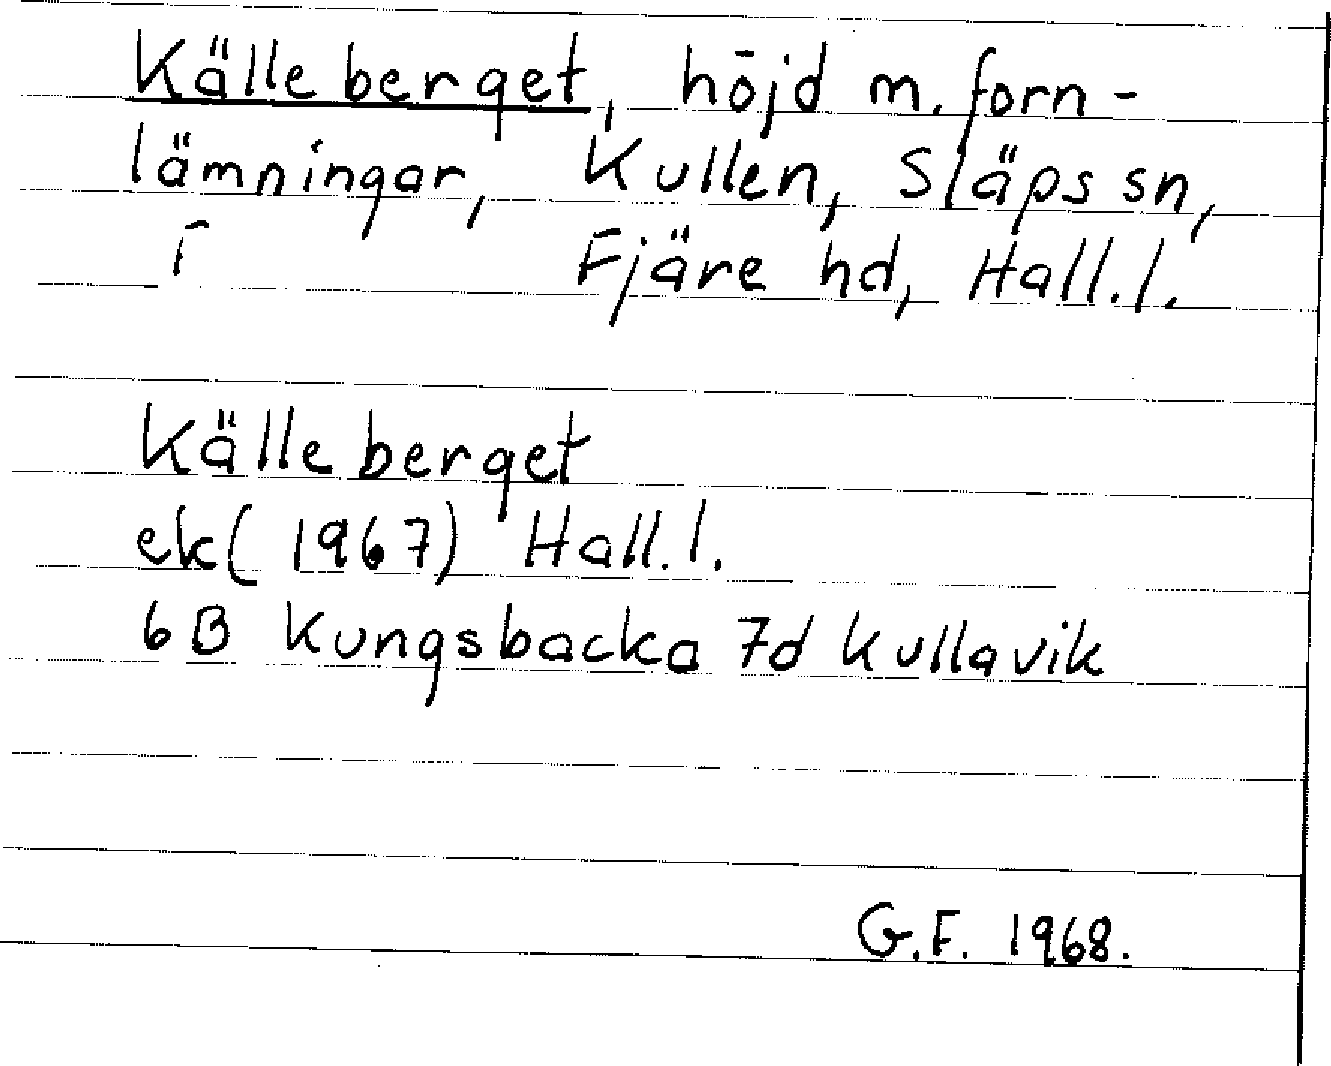 Källeberget, höjd m. forn-
lämningar, Kullen, Släps sn,
Fjäre hd, Hall. l.
Källeberget
ek (1967) Hall. l.
6B Kungsbacka 7d Kullavik
G.F. 1968.